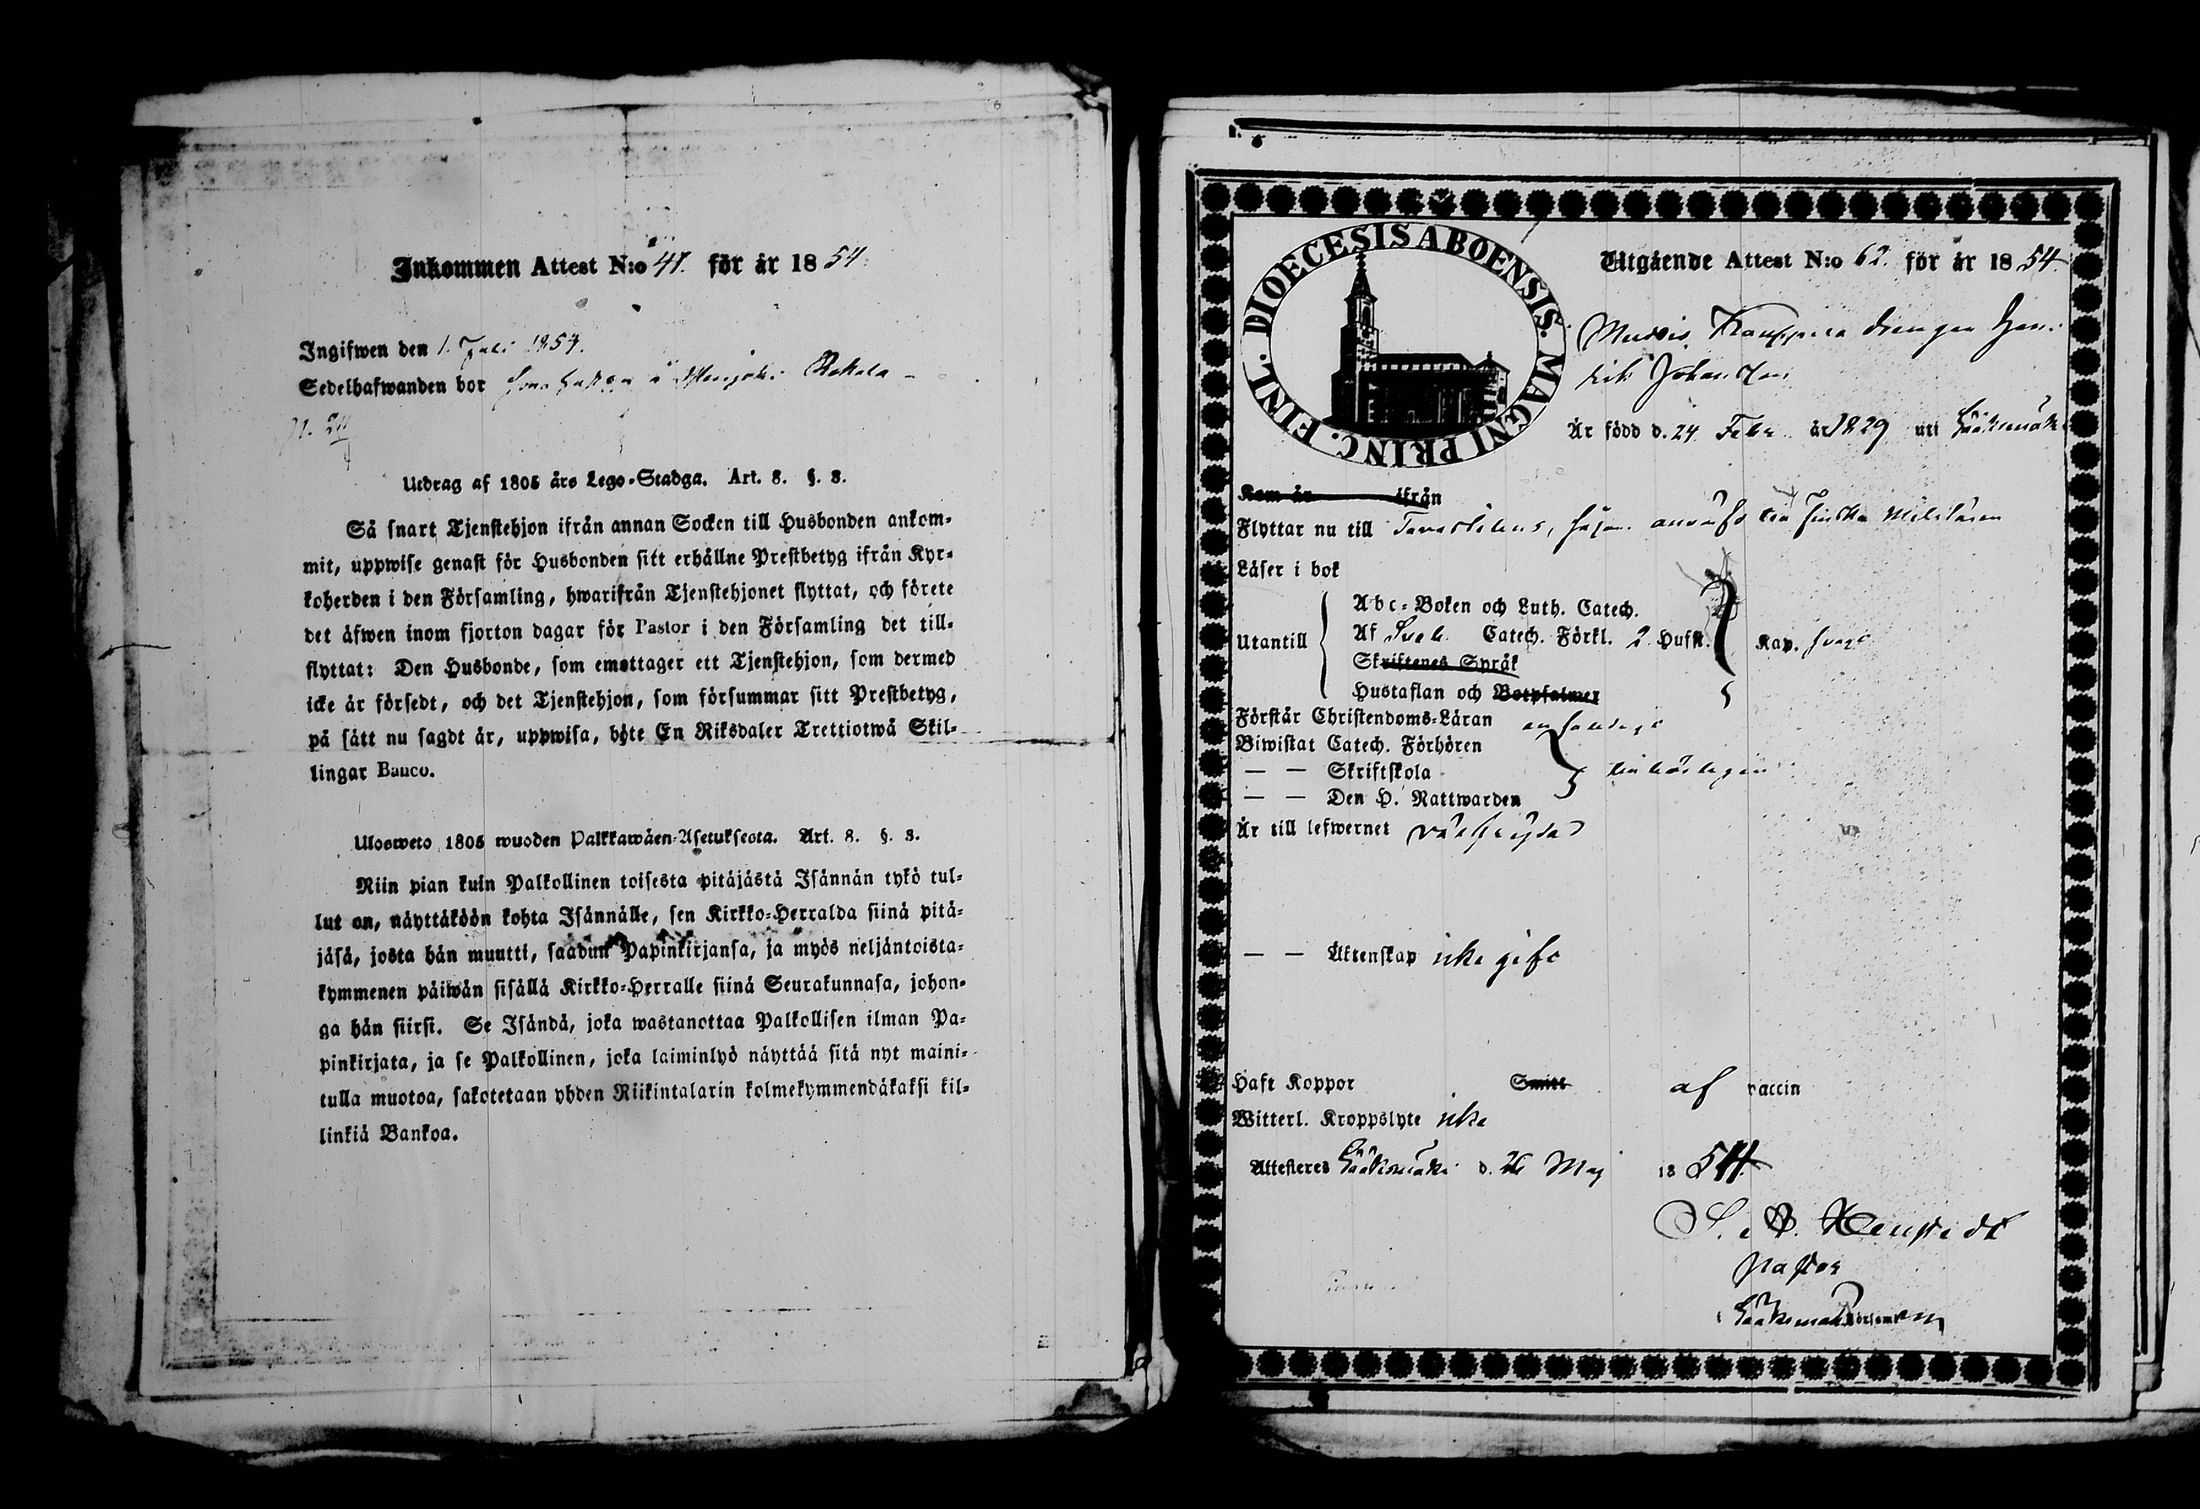 Inkommen Attest N:o 47. för år 1854.
Ingifwen den 1. Juli 1854.
Sedelhafwanden bor
Utdrag af 1805 års Lego-Stadga. Art. 8. §. 3.
Så snart Tjenstehjon ifrån annan Socken till Husbonden ankom-
mit, uppwise genast för Husbonden sitt erhållne Prestbetyg ifrån Kyr-
koherden i den Församling, hwarifrån Tjenstehjonet flyttat, och förete
det äfwen inom fjorton dagar för Pastor i den Församling det till-
flyttat: Den Husbonde, som emottager ett Tjenstehjon, som dermed
icke är försedt, och det Tjenstehjon, som försummar sitt Prestbetyg,
på sätt nu sagdt är, uppwisa, böte En Riksdaler Trettiotwå Skil-
lingar Banco.
Ulosweto 1805 wuoden Palkkawäen-Asetuksesta. Art. 8. §. 3.
Niin pian kuin Palkollinen toisesta pitäjästä Isännän tykö tul-
lut on, näyttäköön kohta Isännälle, sen Kirkko-Herralda siinä pitä-
jäsä, josta hän muutti, saadun Papinkirjansa, ja myös neljäntoista-
kymmenen päiwän sisällä Kirkko-Herralle siinä Seurakunnasa, johon-
ga hän siirsi. Se Isändä, joka wastanottaa Palkollisen ilman Pa-
pinkirjata, ja se Palkollinen, joka laiminlyö näyttää sitä nyt maini-
tulla muotoa, sakotetaan yhden Riikintalarin kolmekymmendäkaksi kil-
linkiä Bankoa.
DIOECESIS ABOENSIS. MAGNI PRINC. FINL.
Utgående Attest N:o 62. för år 1854.
drengen Hen-
rik Johansson
Är född d. 24 Febr. år 1829 uti Sääksmäki
Kom år ifrån
Flyttar nu till Tavastehus, finska Militären
Läser i bok
Utantill
Abc-Boken och Luth. Catech.
Af Sveb. Catech. Förkl. 2 Hufst. Kap. svagt
Skriftenes Språk
Hustaflan och Botpsalmer
Förstår Christendoms-Läran
Biwistat Catech. Förhören
— — Skriftskola
— — Den H. Nattwarden
Är till lefwernet välfrejdad
— — Äktenskap icke gift
Haft Koppor Smitt af vaccin
Witterl. Kroppslyte icke
Attesteras Sääksmäki d. 26 Maj 1854.
Pastor